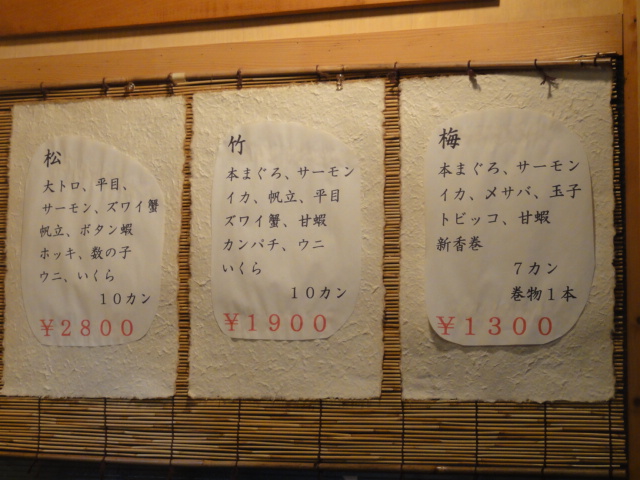 松
大トロ、平目、
サーモン、ズワイ蟹
帆立、ボタン蝦
ホッキ、数の子
ウニ、いくら
10カン
¥2800
竹
本まぐろ、サーモン
イカ、帆立、平目
ズワイ蟹、甘蝦
カンパチ、ウニ
いくら
10カン
¥1900
梅
本まぐろ、サーモン
イカ、メサバ、玉子
トビッコ、甘蝦
新香巻
7カン
巻物1本
¥1300